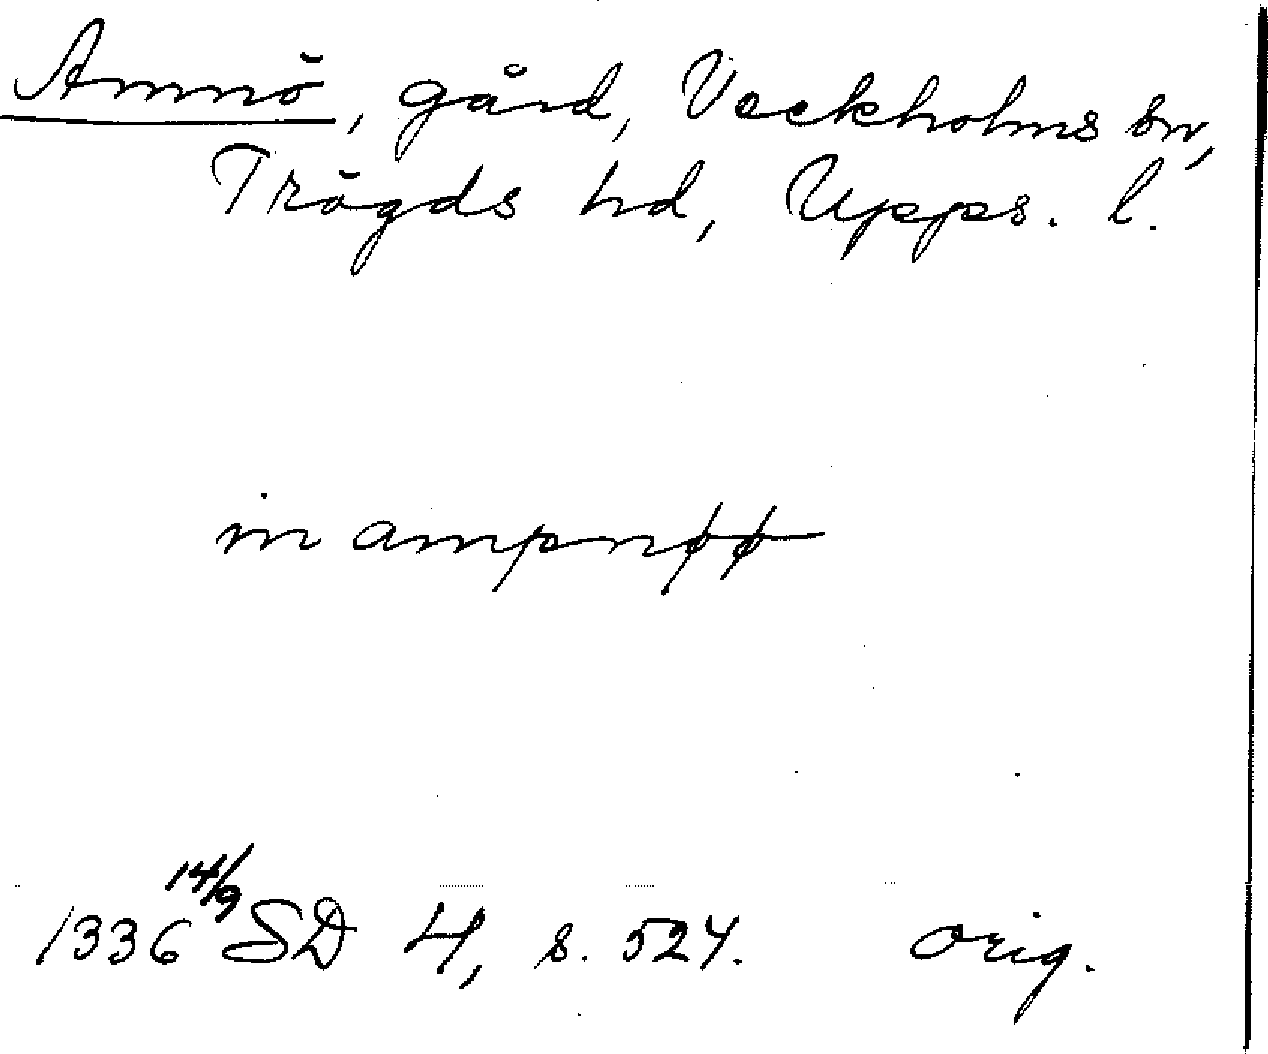 Amnö, gård, Veckholms sn,
Trögds hd, Upps. l.
in ampnøø
1336 14/9 SD 4, s. 524. orig.